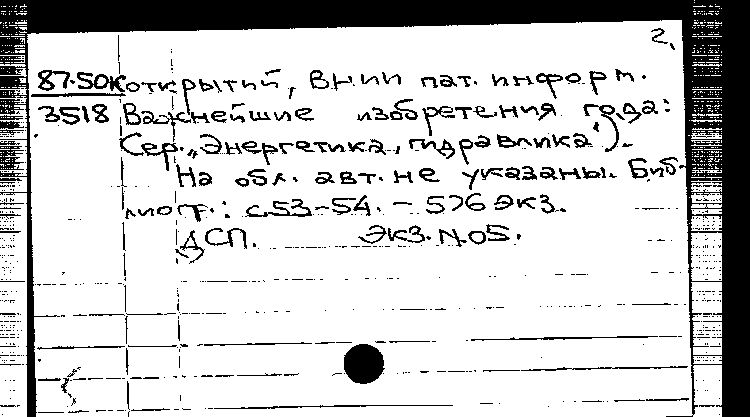 2.
87-50К открытий, ВНИИ пат. информ.
3518 Важнейшие изобретения года:
Сер. „Энергетика, гидравлика").
На обл. авт. не указаны. Биб-
лиогр.: с.53-54. - 576 экз.
ДСП. Экз. N.05.